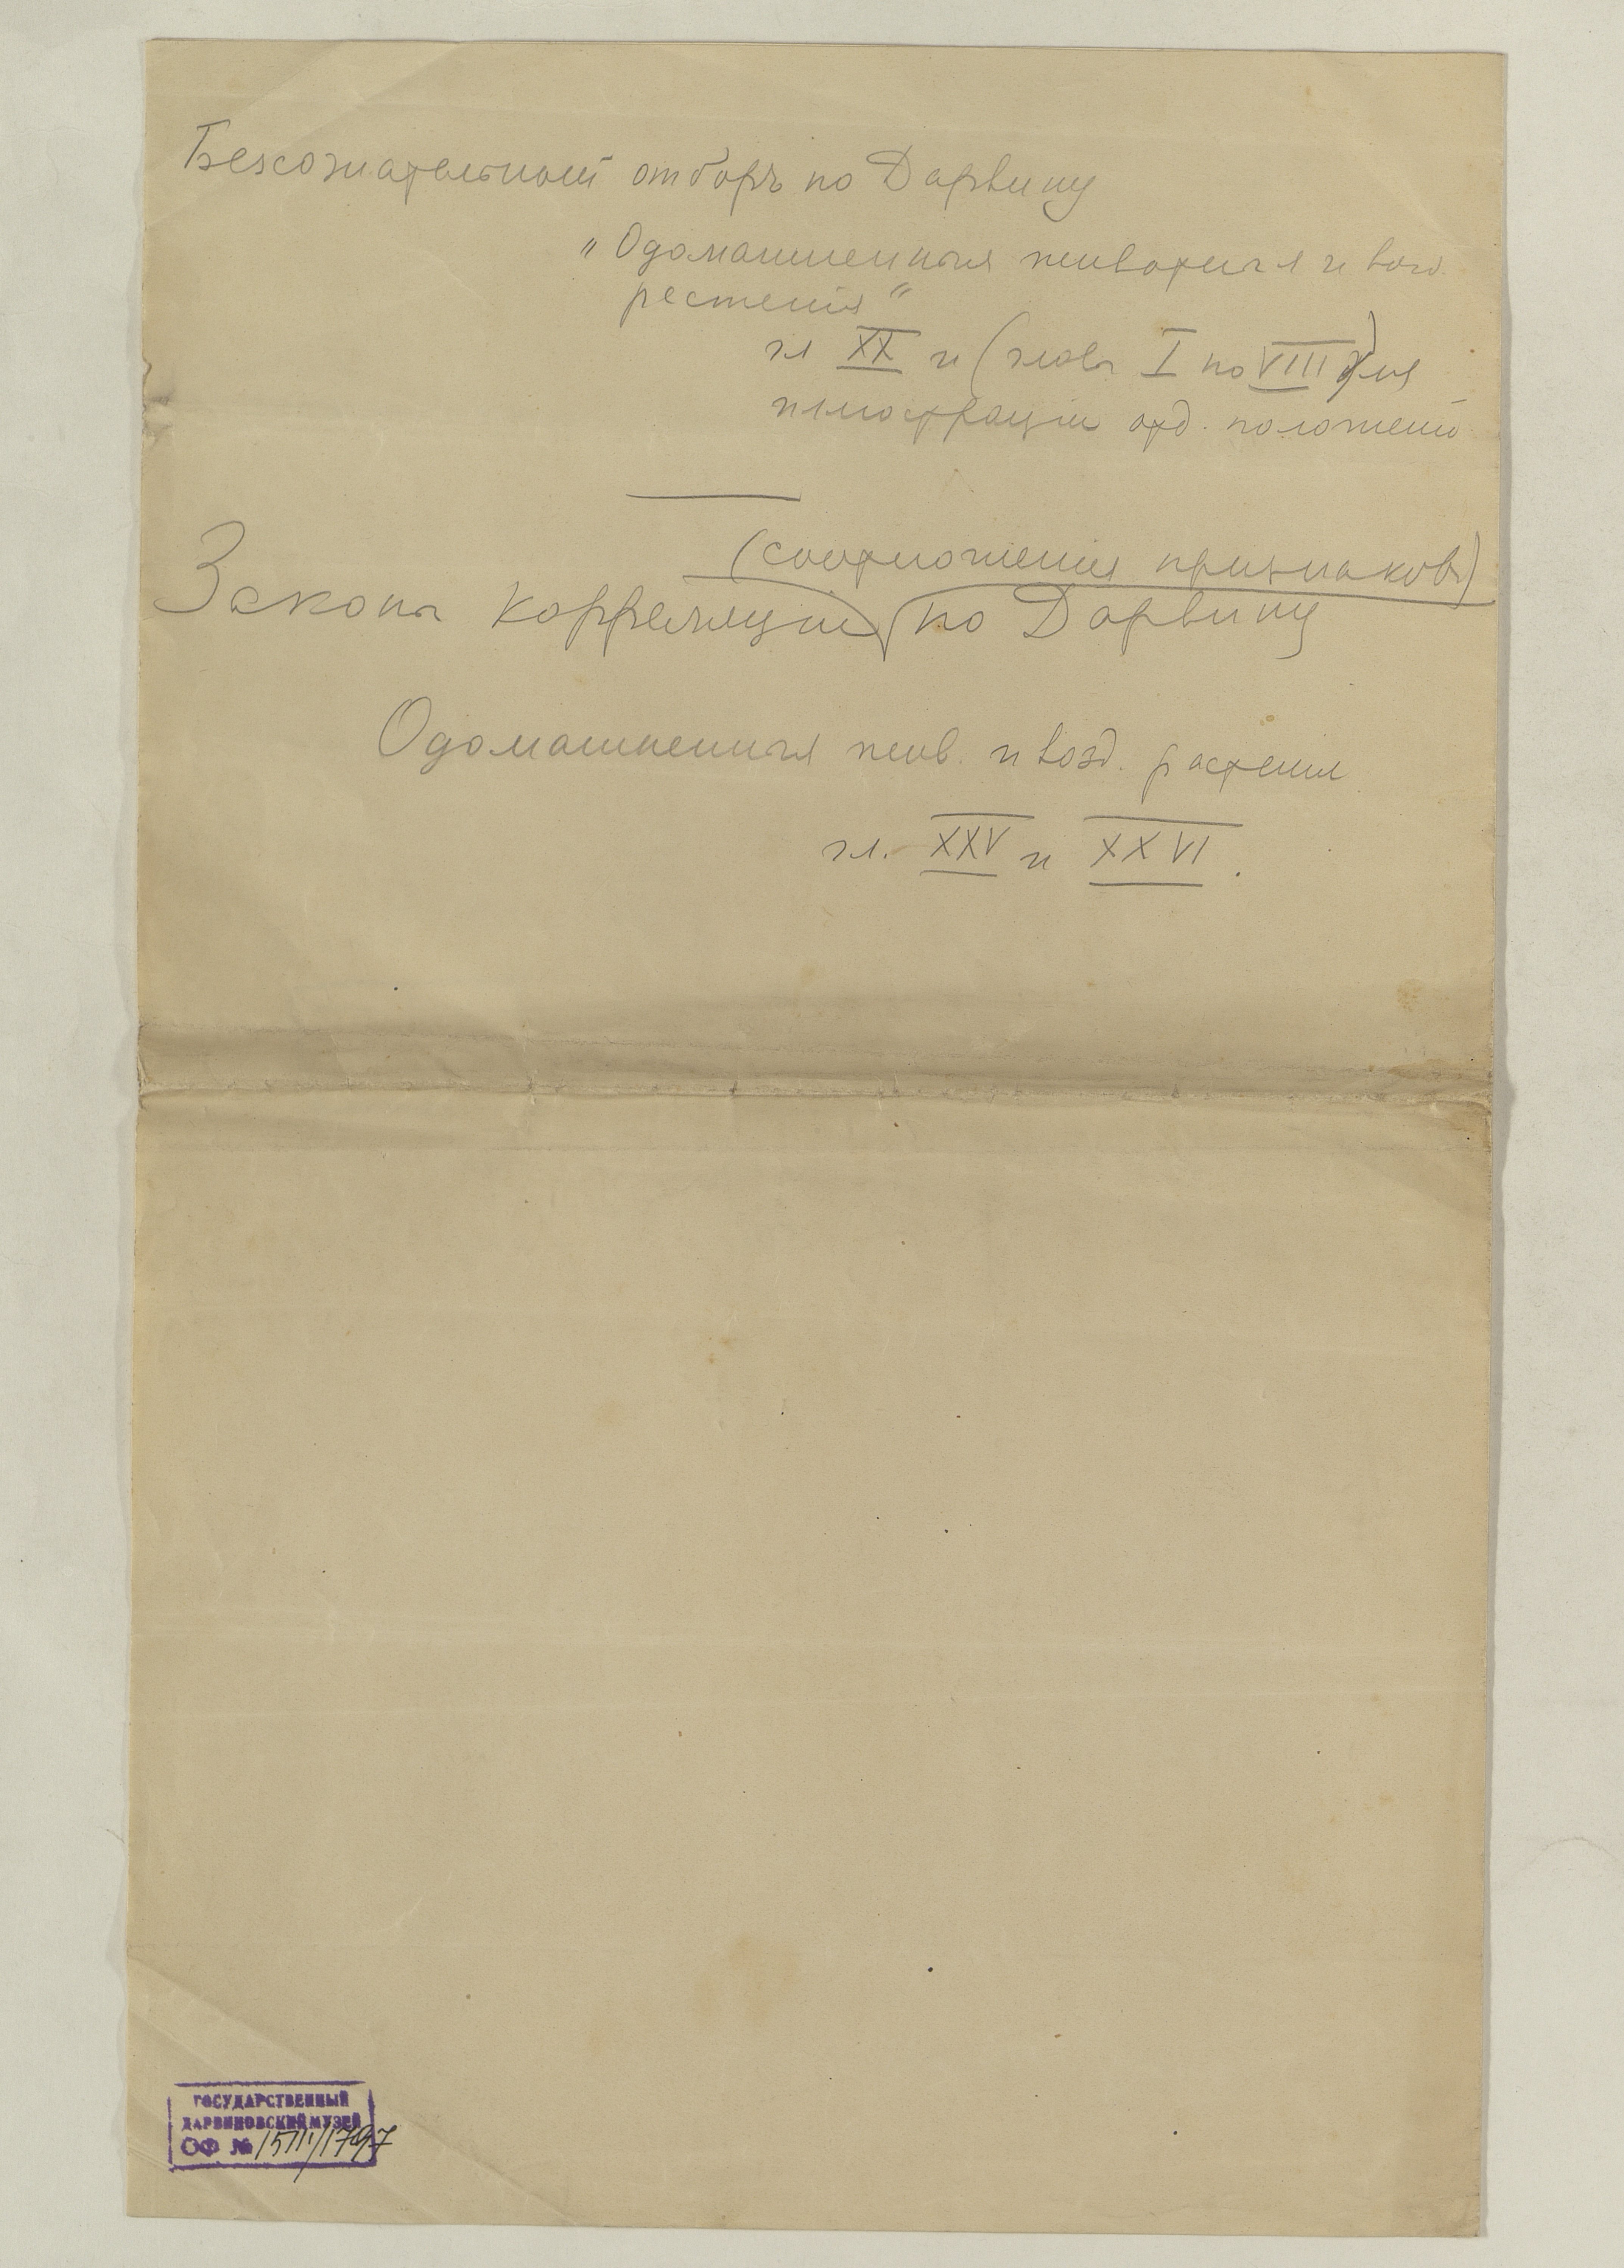 Безсознательный отборъ по Дарвину
„Одомашненныя животныя и возд.
растенія"
гл XX и (главы I по VIII) для
иллюстраціи отд. положеній
(соотношенія признаковъ)
Законы корреляціи по Дарвину
Одомашненныя жив. и возд. растенія
гл. XXV и XXVI.
ГОСУДАРСТВЕННЫЙ
ДАРВИНОВСКИЙ МУЗЕЙ
ОФ №